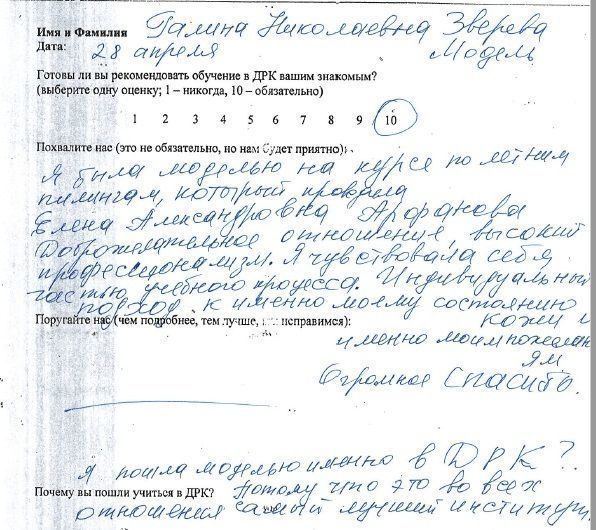 Имя и Фамилия Галина Николаевна Зверева
Дата: 28 апреля Модель
Готовы ли вы рекомендовать обучение в ДРК вашим знакомым?
(выберите одну оценку; 1 – никогда, 10 – обязательно)
1 2 3 4 5 6 7 8 9 10
Похвалите нас (это не обязательно, но нам будет приятно):
Я была моделью на курсе по летним
пилингам, который проводила
Елена Александровна
Доброжелательное отношение, высокий
профессионализм. Я чувствовала себя
частью учебного процесса. Индивидуальный
подход к именно моему состоянию
кожи и
Поругайте нас (чем подробнее, тем лучше, исправимся):
именно моим пожелани
ям
Огромное спасибо.
Я пошла моделью именно в ДРК?
Почему вы пошли учиться в ДРК? Потому что это во всех
отношениях самый лучший институт.